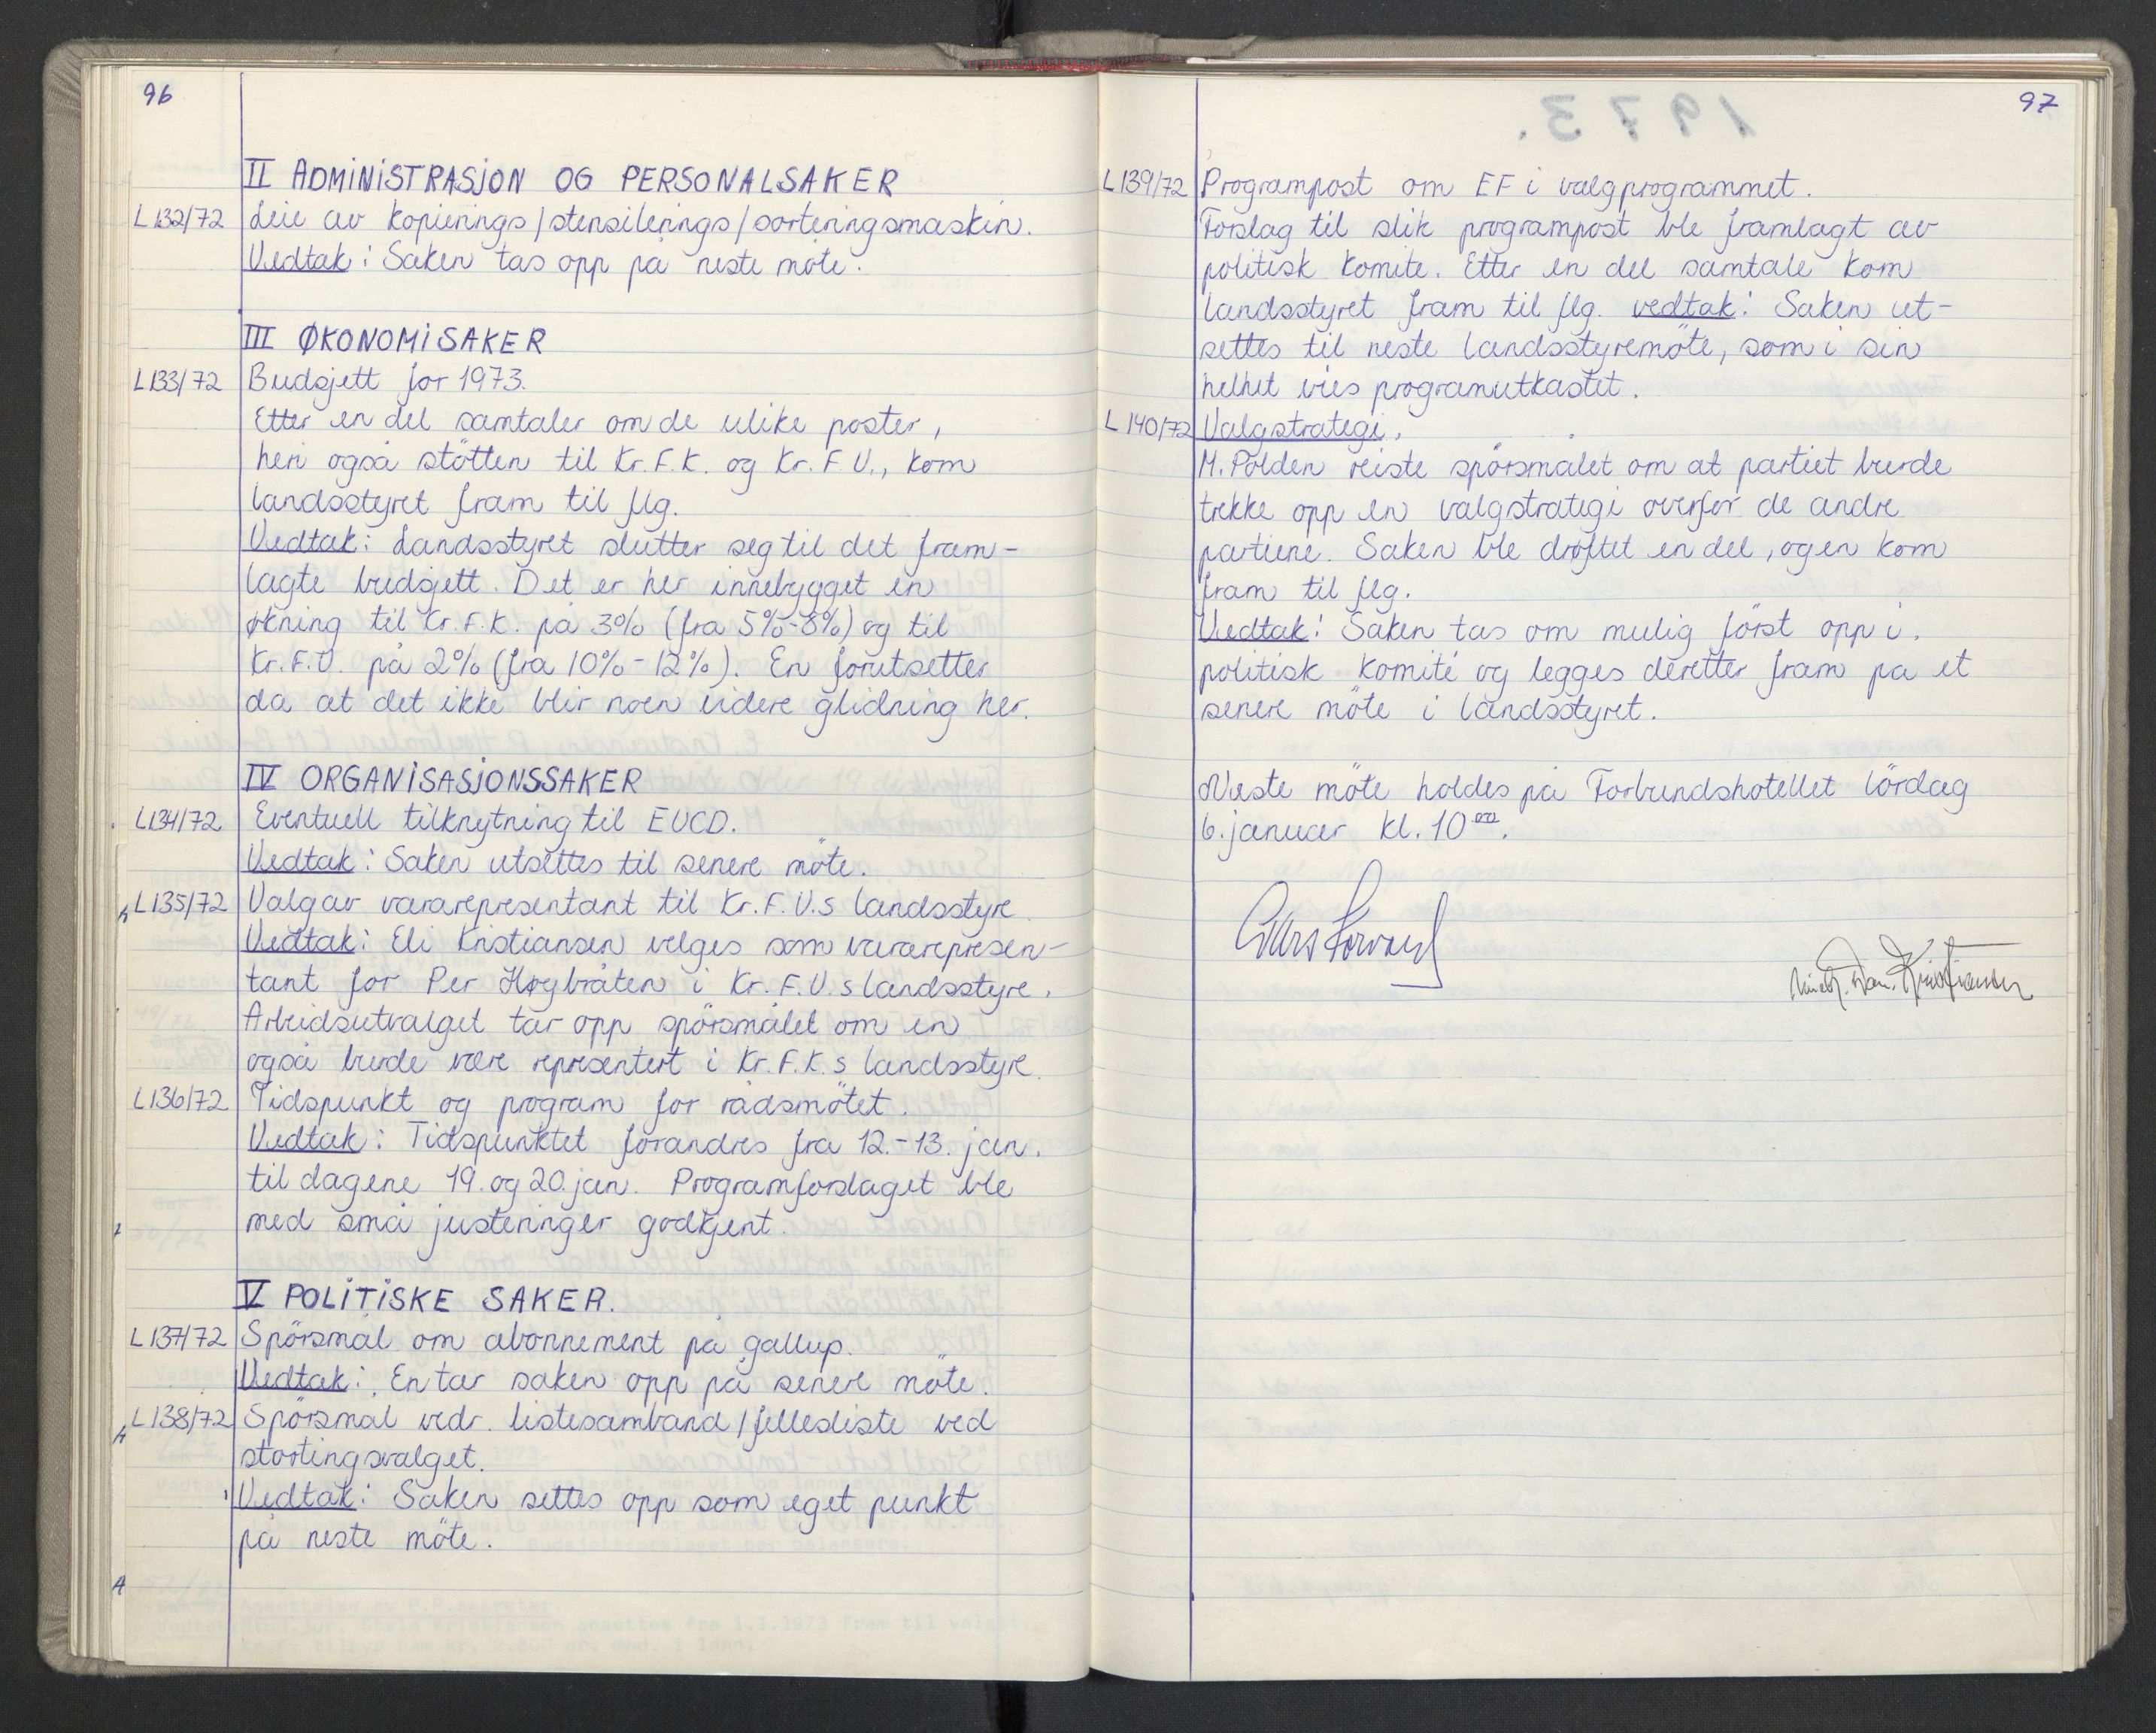 96
II ADMINISTRASJON OG PERSONALSAKER
L132/72 Leie av kopierings/stensilerings/sorteringsmaskin.
Vedtak: Saken tas opp på neste möte.
III ØKONOMISAKER
L133/72 Budsjett for 1973.
Etter en del samtaler om de ulike poster,
heri også stötten til Kr.F.K. og Kr.F.U., kom
landsstyret fram til flg.
Vedtak: Landsstyret slutter seg til det fram-
lagte budsjett. Det er her innebygget en
økning til Kr.F.K. på 3% (fra 5%-8%) og til
Kr.F.U. på 2% (fra 10%-12%). En forutsetter
da at det ikke blir noen videre glidning her.
IV ORGANISASJONSSAKER
L134/72 Eventuell tilknytning til EUCD.
Vedtak: Saken utsettes til senere möte.
L135/72 Valg av vararepresentant til Kr.F.U.s landsstyre
Vedtak: Eli Kristiansen velges som vararepresen-
tant for Per Høybråten i Kr.F.U.s landsstyre.
Arbeidsutvalget tar opp spörsmålet om en
også burde være representert i Kr.F.K.s landsstyre.
L136/72 Tidspunkt og program for rådsmötet.
Vedtak: Tidspunktet forandres fra 12.-13. jan.
til dagene 19. og 20. jan. Programforslaget ble
med små justeringer godkjent.
V POLITISKE SAKER.
L137/72 Spörsmål om abonnement på gallup.
Vedtak: En tar saken opp på senere möte.
L138/72 Spörsmål vedr. listesamband/fellesliste ved
stortingsvalget.
Vedtak: Saken settes opp som eget punkt
på neste möte.
97
L139/72 Programpost om EF i valgprogrammet.
Forslag til slik programpost ble framlagt av
politisk komite. Etter en del samtale kom
landsstyret fram til flg. vedtak: Saken ut-
settes til neste landsstyremöte, som i sin
helhet vies programutkastet.
L140/72 Valgstrategi.
M. Polden reiste spörsmålet om at partiet burde
trekke opp en valgstrategi overfor de andre
partiene. Saken ble drøftet en del, og en kom
fram til flg.
Vedtak: Saken tas om mulig först opp i
politisk komité og legges deretter fram på et
senere möte i landsstyret.
Neste möte holdes på Forbundshotellet lördag
6. januar kl. 10 00.
Lars Korvald
Kristiansen